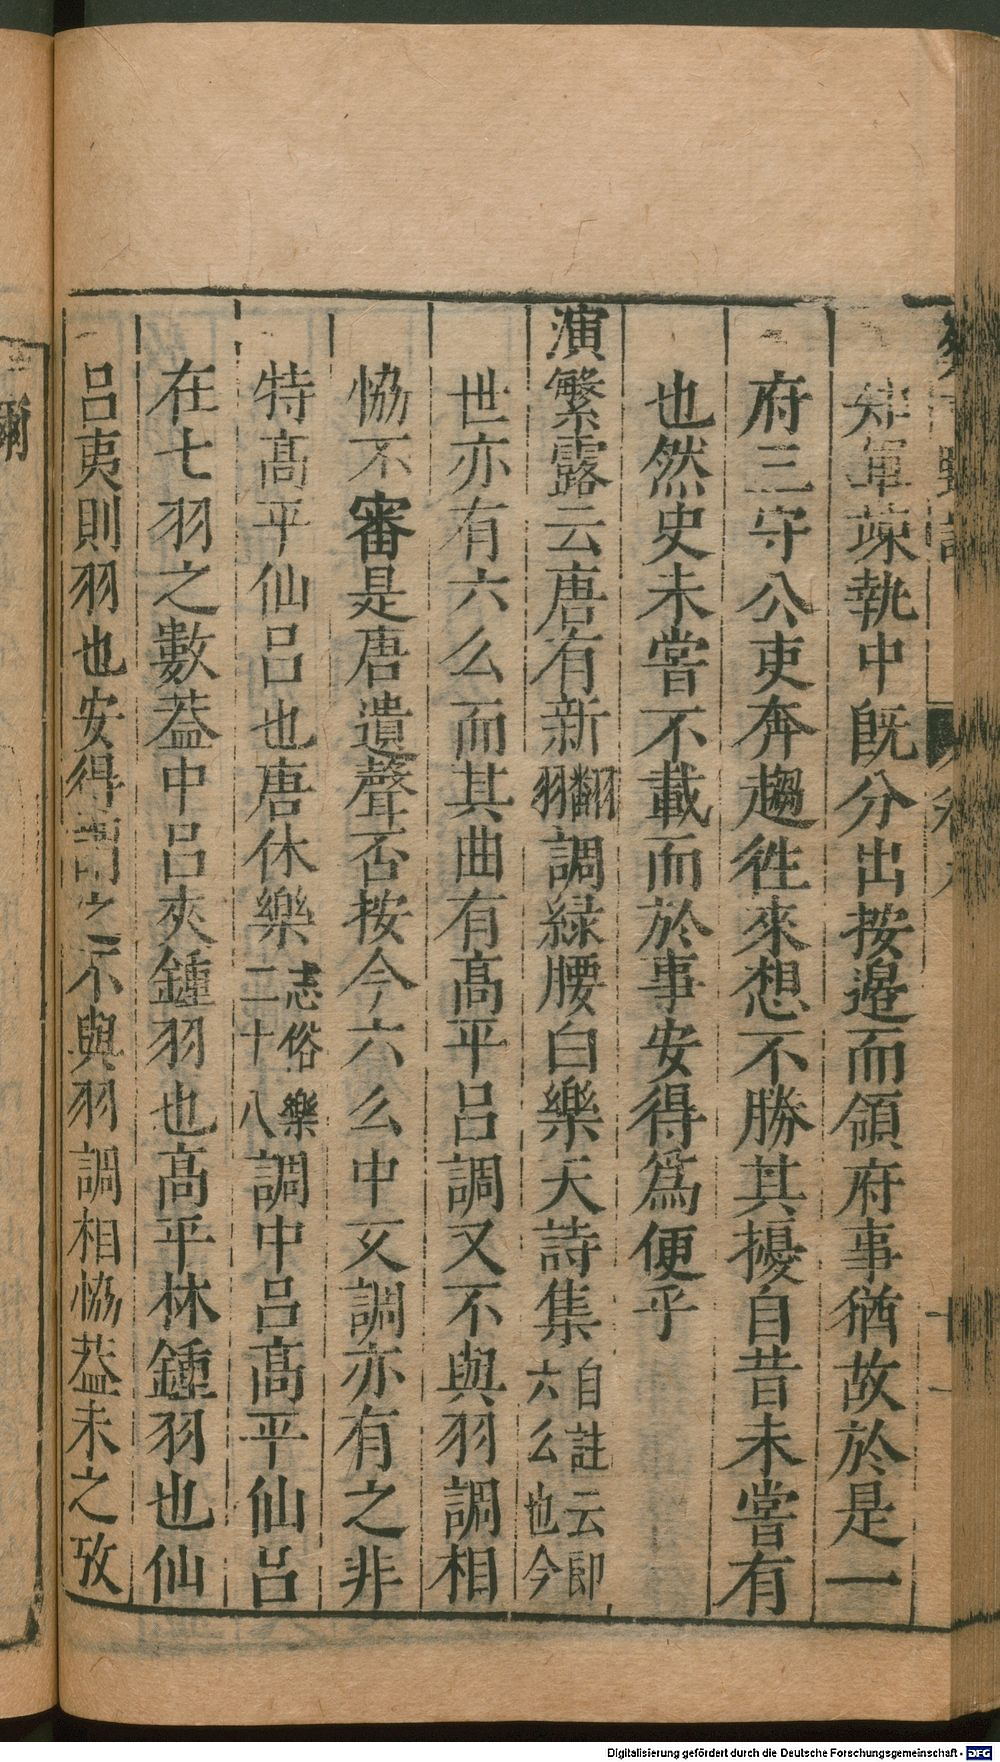 知軍竦執中既分出按邊而領府事猶故於是一
府三守公吏奔趨徃來想不勝其擾自昔未嘗有
也然史未嘗不載而於事安得爲便乎
演繁露云唐有新翻羽調緑腰白樂天詩集自註云即六么也今
世亦有六么而其曲有高平呂調又不與羽調相
恊不審是唐遺聲否按今六么中㕛調亦有之非
特高平仙呂也唐休樂志俗樂二十八調中呂高平仙呂
在七羽之數葢中呂夾鍾羽也高平林鍾羽也仙
呂夷則羽也安得謂之不與羽調相恊葢未之攷
Digitalisierung gefördert durch die Deutsche Forschungsgemeinschaft - DFG